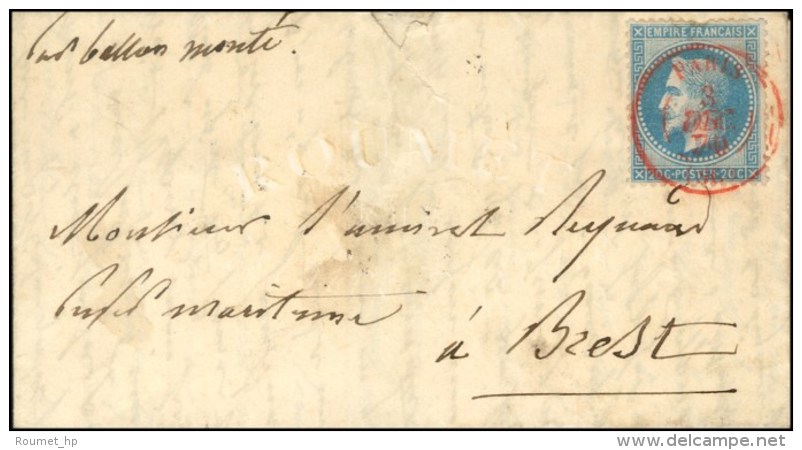 Par ballon monté.
EMPIRE FRANÇAIS
PARIS
8
DEC
70
20C·POSTES·20C
ROUMET
Monsieur l'amiral Reynaud
Préfet maritime
à Brest
Roumet_hp
www.delcampe.net